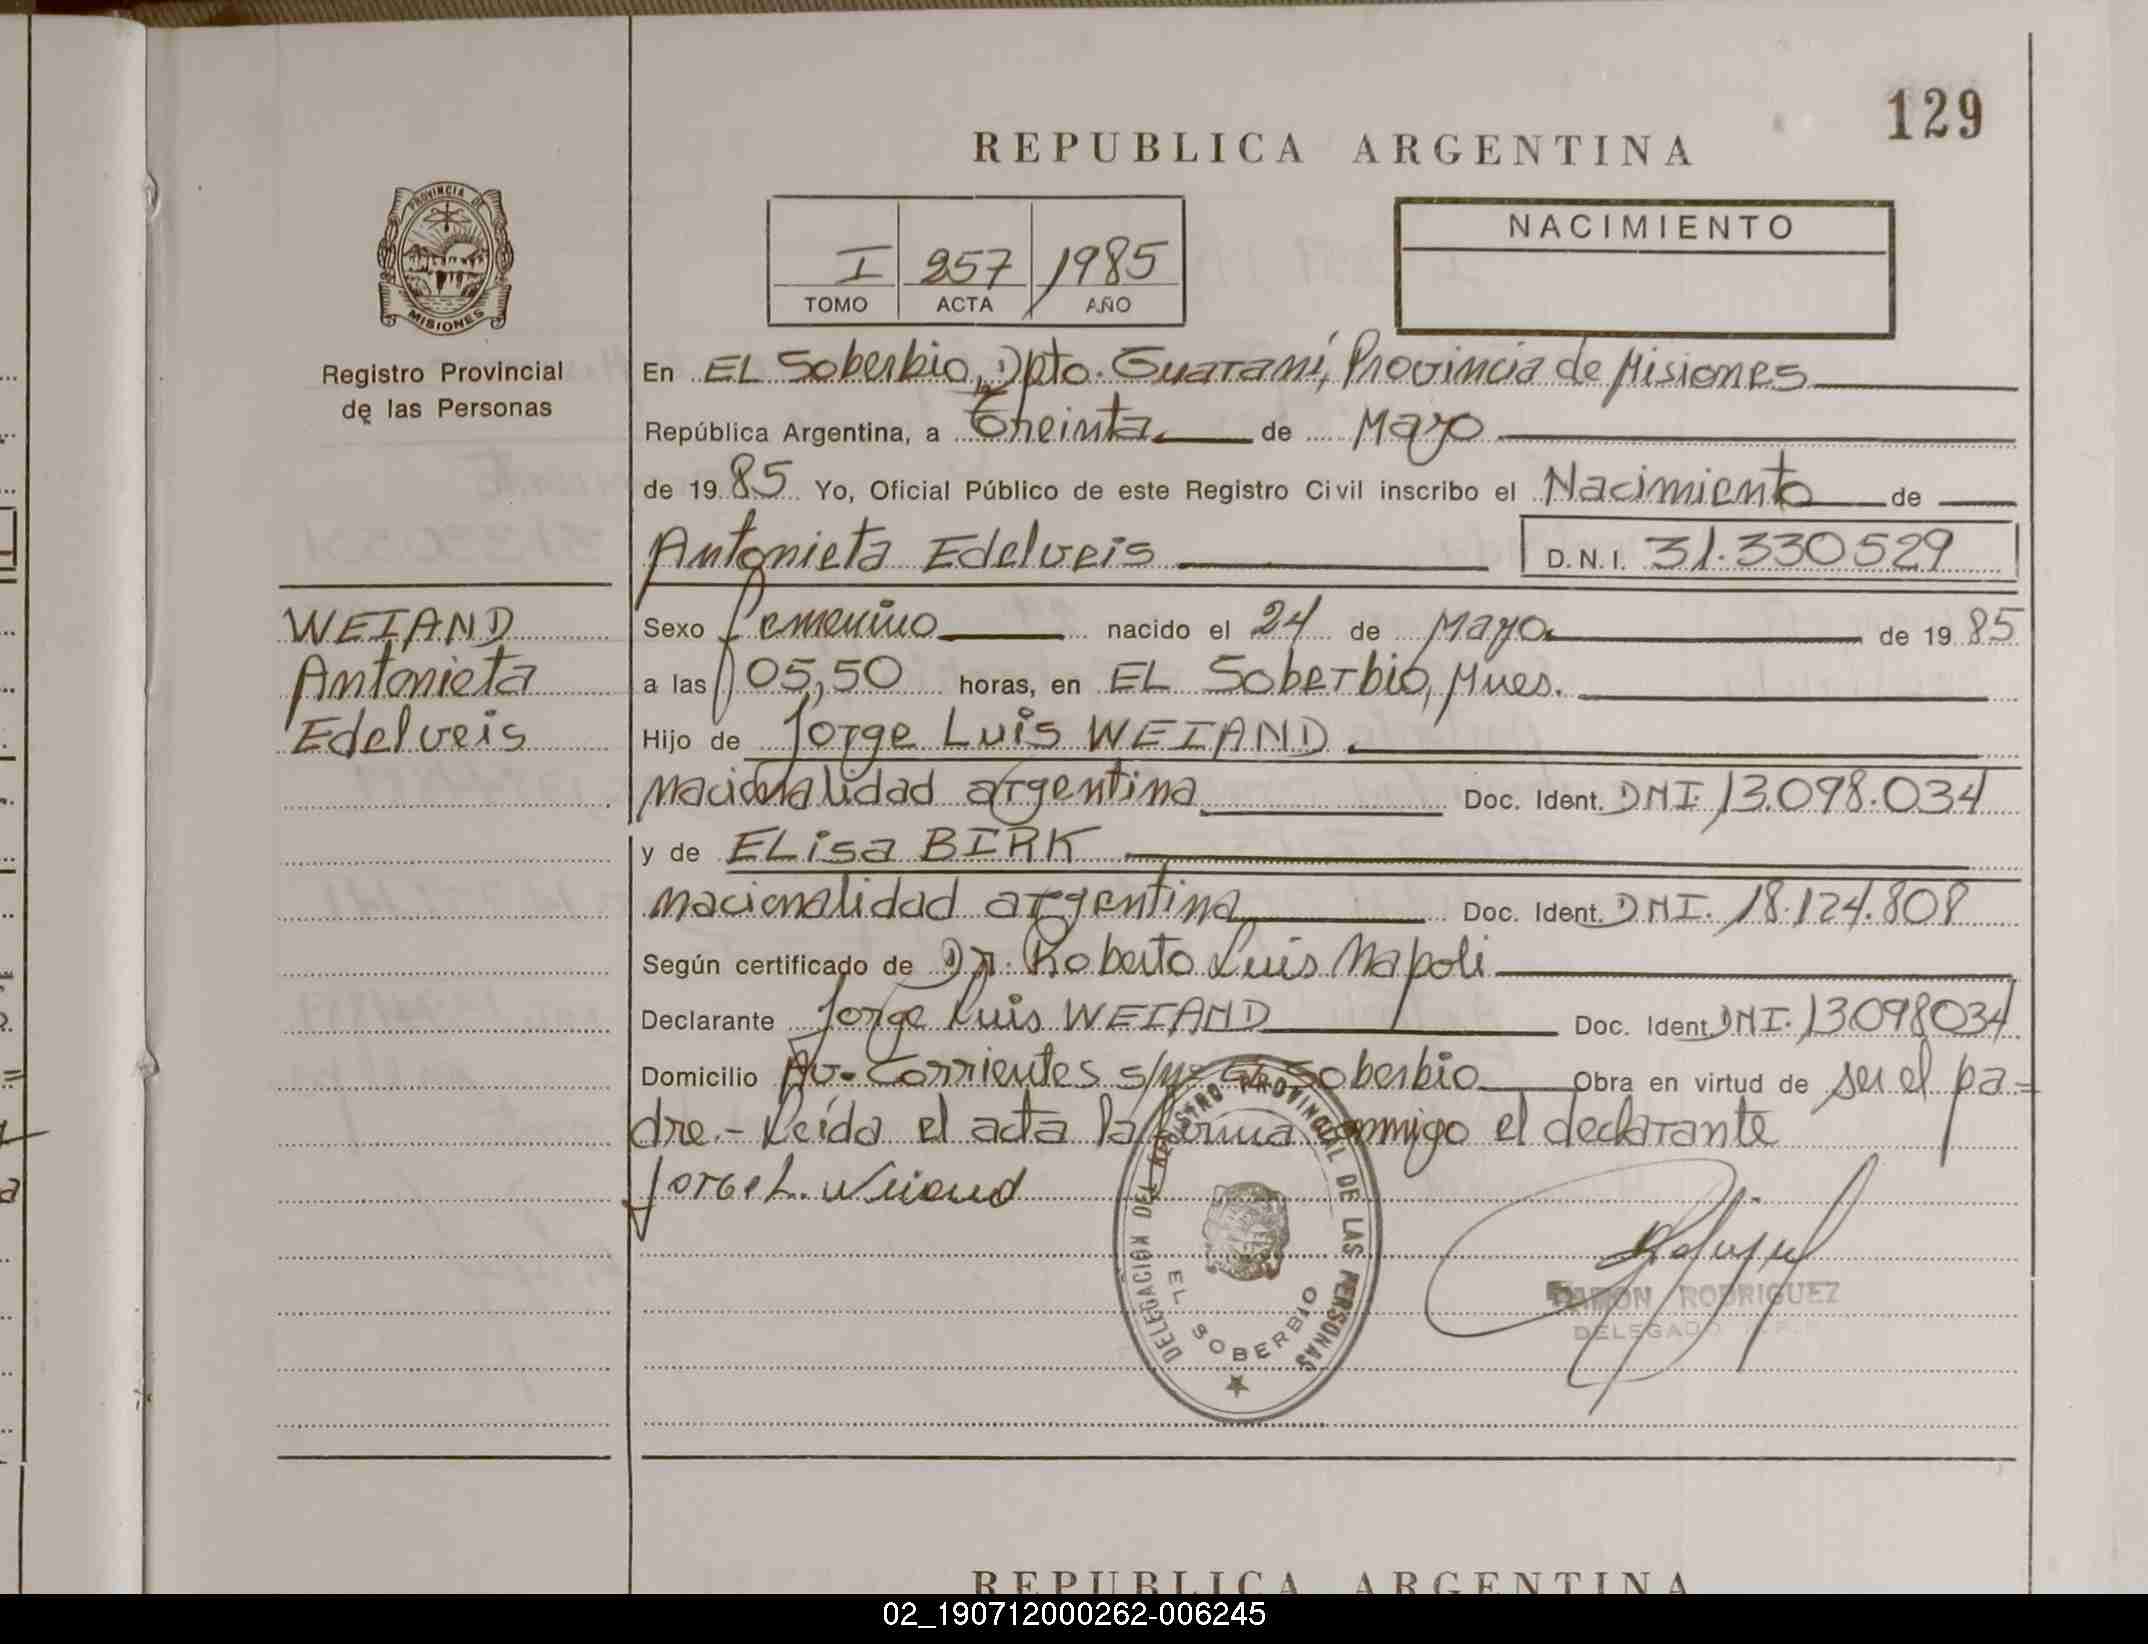 129
REPUBLICA ARGENTINA
PROVINCIA DE
MISIONES
Registro Provincial
de las Personas
I 257 1985
TOMO ACTA AÑO
NACIMIENTO
En EL Soberbio, Dpto. Guaraní, Provincia de Misiones
República Argentina, a Treinta de Mayo
de 1985 Yo, Oficial Público de este Registro Civil inscribo el Nacimiento de
Antonieta Edelveis D.N.I. 31.330529
WEIAND
Antonieta
Edelveis
Sexo femenino nacido el 24 de Mayo de 1985
a las 05,50 horas, en EL Soberbio, Mnes.
Hijo de Jorge Luis WEIAND
nacionalidad argentina Doc. Ident. DNI. 13.098.034
y de ELisa BIRK
nacionalidad argentina Doc. Ident. DNI. 18.124.808
Según certificado de Dr. Roberto Luis Napoli
Declarante Jorge Luis WEIAND Doc. Ident DNI. 13.098034
Domicilio Av. Corrientes s/nº El Soberbio Obra en virtud de ser el pa=
dre.- Leída el acta la firma conmigo el declarante
Jorge L. Weiand
DELEGACION DEL REGISTRO PROVINCIAL DE LAS PERSONAS
EL SOBERBIO
RAMON RODRIGUEZ
DELEGADO
REPUBLICA ARGENTINA
02_190712000262-006245